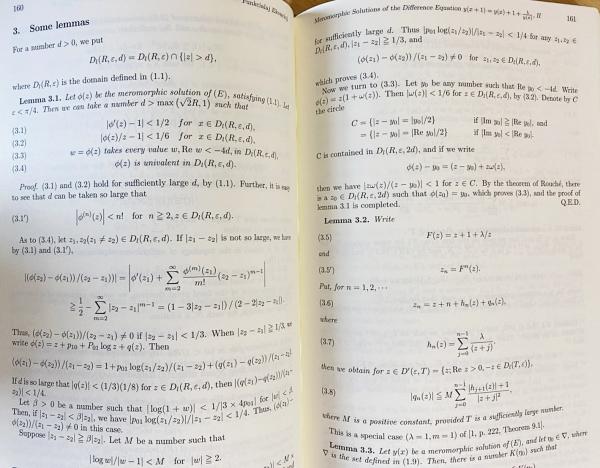 160
Funkcialaj Ekvacioj
3. Some lemmas
For a number d > 0, we put
D₁(R, ε, d) = D₁(R, ε) ∩ {|z| > d},
where D₁(R, ε) is the domain defined in (1.1).
Lemma 3.1. Let ϕ(z) be the meromorphic solution of (E), satisfying (1.1). Let
ε < π/4. Then we can take a number d > max (√2R, 1) such that
(3.1) |ϕ'(z) − 1| < 1/2 for x ∈ D₁(R, ε, d),
(3.2) |ϕ(z)/z − 1| < 1/6 for x ∈ D₁(R, ε, d),
(3.3) w = ϕ(z) takes every value w, Re w < −4d, in D₁(R, ε, d),
(3.4) ϕ(z) is univalent in D₁(R, ε, d).
Proof. (3.1) and (3.2) hold for sufficiently large d, by (1.1). Further, it is easy
to see that d can be taken so large that
(3.1') |ϕ⁽ⁿ⁾(z)| < n! for n ≧ 2, z ∈ D₁(R, ε, d).
As to (3.4), let z₁, z₂(z₁ ≠ z₂) ∈ D₁(R, ε, d). If |z₁ − z₂| is not so large, we have
by (3.1) and (3.1'),
|(ϕ(z₂) − ϕ(z₁))/(z₂ − z₁))| = |ϕ'(z₁) + ∑_{m=2}^{∞} ϕ⁽ᵐ⁾(z₁)/m! (z₂ − z₁)ᵐ⁻¹|
≧ 1/2 − ∑_{m=2}^{∞} |z₂ − z₁|ᵐ⁻¹ = (1 − 3|z₂ − z₁|) / (2 − 2|z₂ − z₁|).
Thus, (ϕ(z₂) − ϕ(z₁))/(z₂ − z₁) ≠ 0 if |z₂ − z₁| < 1/3. When |z₂ − z₁| ≧ 1/3, we
write ϕ(z) = z + p₁₀ + P₀₁ log z + q(z). Then
(ϕ(z₁) − ϕ(z₂))/(z₁ − z₂) = 1 + p₀₁ log(z₁/z₂)/(z₁ − z₂) + (q(z₁) − q(z₂))/(z₁ − z₂).
If d is so large that |q(z)| < (1/3)(1/8) for z ∈ D₁(R, ε, d), then |(q(z₁) − q(z₂))/(z₁ −
z₂)| < 1/4.
Let β > 0 be a number such that |log(1 + w)| < 1/|3 × 4p₀₁| for |w| < β.
Then, if |z₁ − z₂| < β|z₂|, we have |p₀₁ log(z₁/z₂)/(z₁ − z₂)| < 1/4. Thus, (ϕ(z₁) −
ϕ(z₂))/(z₁ − z₂) ≠ 0 in this case.
Suppose |z₁ − z₂| ≧ β|z₂|. Let M be a number such that
|log w|/|w − 1| < M for |w| ≧ 2.
Meromorphic Solutions of the Difference Equation y(x + 1) = y(x) + 1 + λ/y(x), II
161
for sufficiently large d. Thus |p₀₁ log(z₁/z₂)|/|z₁ − z₂| < 1/4 for any z₁, z₂ ∈
D₁(R, ε, d), |z₁ − z₂| ≧ 1/3, and
(ϕ(z₁) − ϕ(z₂))/(z₁ − z₂) ≠ 0 for z₁, z₂ ∈ D₁(R, ε, d),
which proves (3.4).
Now we turn to (3.3). Let y₀ be any number such that Re y₀ < −4d. Write
ϕ(z) = z(1 + ω(z)). Then |ω(z)| < 1/6 for z ∈ D₁(R, ε, d), by (3.2). Denote by C
the circle
C = {|z − y₀| = |y₀|/2} if |Im y₀| ≧ |Re y₀|, and
= {|z − y₀| = |Re y₀|/2} if |Im y₀| < |Re y₀|.
C is contained in D₁(R, ε, 2d), and if we write
ϕ(z) − y₀ = (z − y₀) + zω(z),
then we have |zω(z)/(z − y₀)| < 1 for z ∈ C. By the theorem of Rouché, there
is a z₀ ∈ D₁(R, ε, 2d) such that ϕ(z₀) = y₀, which proves (3.3), and the proof of
lemma 3.1 is completed. Q.E.D.
Lemma 3.2. Write
(3.5) F(z) = z + 1 + λ/z
and
(3.5') zₙ = Fⁿ(z).
Put, for n = 1, 2, ···
(3.6) zₙ = z + n + hₙ(z) + qₙ(z),
where
(3.7) hₙ(z) = ∑_{j=0}^{n−1} λ/(z + j),
then we obtain for z ∈ D'(ε, T) = {z; Re z > 0, −z ∈ D₁(T, ε)},
(3.8) |qₙ(z)| ≦ M ∑_{j=0}^{n−1} |h_{j+1}(z)| + 1/|z + j|²,
where M is a positive constant, provided T is a sufficiently large number.
This is a special case (λ = 1, m = 1) of [1, p. 222, Theorem 9.1].
Lemma 3.3. Let y(x) be a meromorphic solution of (E), and let η₀ ∈ ∇, where
∇ is the set defined in (1.9). Then, there is a number K(η₀) such that